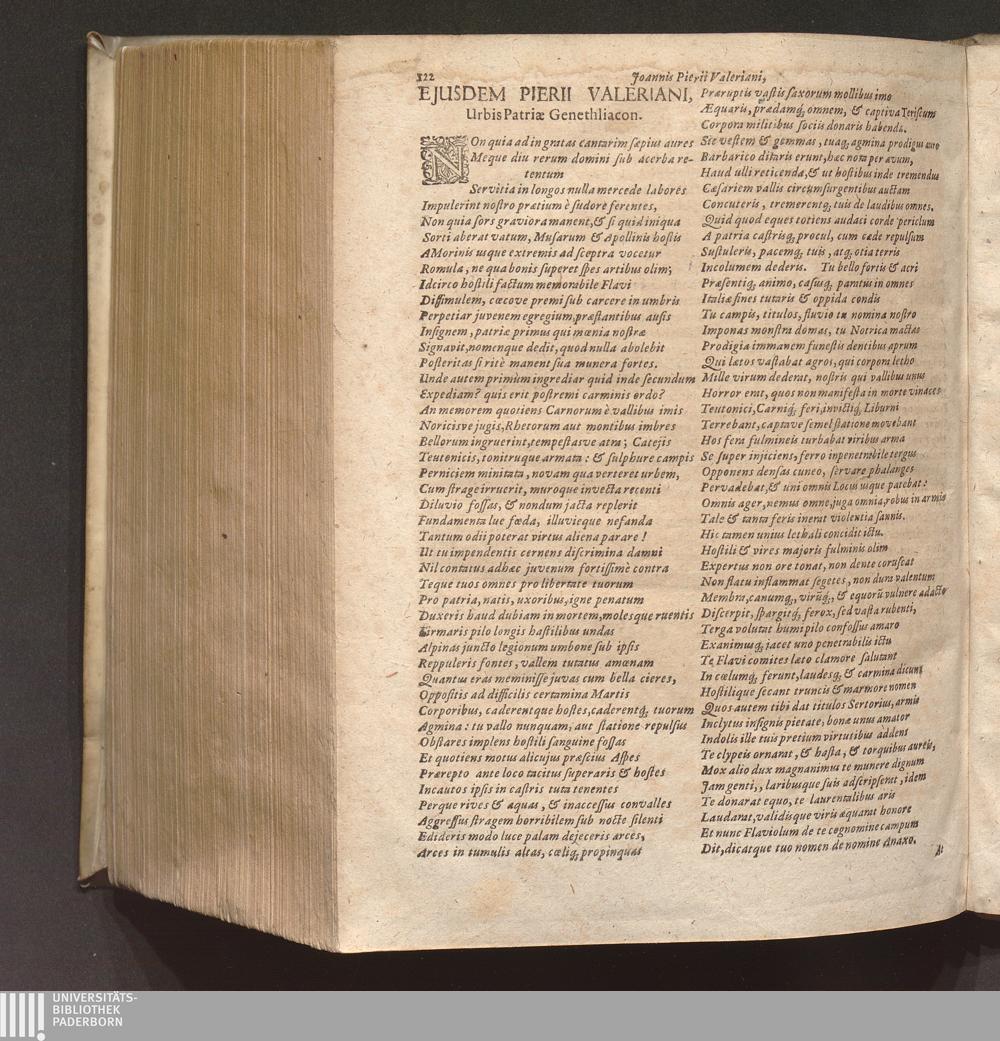 122 Joannis Pierii Valeriani,
EJUSDEM PIERII VALERIANI,
Urbis Patriæ Genethliacon.
NOn quia ad ingratas cantarim sæpius aures
Meque diu rerum domini sub acerba re-
tentum
Servitia in longos nulla mercede labores
Impulerint nostro prætium è sudore ferentes,
Non quia sors graviora manent, & si quid iniqua
Sorti aberat vatum, Musarum & Apollinis hostis
A Morinis usque extremis ad sceptra vocetur
Romula, ne qua bonis superet spes artibus olim;
Idcirco hostili factum memorabile Flavi
Dissimulem, cæcove premi sub carcere in umbris
Perpetiar juvenem egregium, præstantibus ausis
Insignem, patriæ primus qui mœnia nostræ
Signavit, nomenque dedit, quod nulla abolebit
Posteritas si ritè manent sua munera fortes.
Unde autem primùm ingrediar quid inde secundum
Expediam? quis erit postremi carminis ordo?
An memorem quotiens Carnorum è vallibus imis
Noricisve jugis, Rhetorum aut montibus imbres
Bellorum ingruerint, tempestasve atra; Catejis
Teutonicis, tonitruque armata: & sulphure campis
Perniciem minitata, novam qua verteret urbem,
Cum strage irruerit, muroque invecta recenti
Diluvio fossas, & nondum jacta replerit
Fundamenta lue fœda, illuvieque nefanda
Tantum odii poterat virtus aliena parare!
Ut tu impendentis cernens discrimina damni
Nil contatus adhæc juvenum fortissimè contra
Teque tuos omnes pro libertate tuorum
Pro patria, natis, uxoribus, igne penatum
Duxeris haud dubiam in mortem, molesque ruentis
Firmaris pilo longis hastilibus undas
Alpinas juncto legionum umbone sub ipsis
Reppuleris fontes, vallem tutatus amœnam
Quantus eras meminisse juvas cum bella cieres,
Oppositis ad difficilis certamina Martis
Corporibus, caderentque hostes, caderentq; tuorum
Agmina: tu vallo nunquam, aut statione repulsus
Obstares implens hostili sanguine fossas
Et quotiens motus alicujus præscius Aspes
Prærepto ante loco tacitus superaris & hostes
Incautos ipsis in castris tuta tenentes
Perque rives & aquas, & inaccessus convalles
Aggressus stragem horribilem sub nocte silenti
Edideris modo luce palam dejeceris arces,
Arces in tumulis altas, cœliq; propinquas
Præruptis vastis saxorum mollibus imo
Æquaris, prædamq; omnem, & captiva Teriscum
Corpora militibus sociis donaris habenda.
Sic vestem & gemmas, tuaq; agmina prodigus auro
Barbarico ditaris erunt, hæc nota per ævum,
Haud ulli reticenda, & ut hostibus inde tremendus
Cæsariem vallis circumsurgentibus auctam
Concuteris, tremerentq; tuis de laudibus omnes.
Quid quod eques totiens audaci corde periclum
A patria castrisq; procul, cum cæde repulsum
Sustuleris, pacemq; tuis, atq; otia terris
Incolumem dederis. Tu bello fortis & acri
Præsentiq; animo, casusq; paratus in omnes
Italiæ fines tutaris & oppida condis
Tu campis, titulos, fluvio tu nomina nostro
Imponas monstra domas, tu Notrica mactas
Prodigia immanem funestis dentibus aprum
Qui lætos vastabat agros, qui corpora letho
Mille virum dederat, nostris qui vallibus unus
Horror erat, quos non manifesta in morte vinaces
Teutonici, Carniq; feri, invictiq; Liburni
Terrebant, captave semel statione movebant
Hos fera fulmineis turbabat viribus arma
Se super injiciens, ferro inpenetrabile tergus
Opponens densas cuneo, servare phalanges
Pervadebat, & uni omnis Locus usque patebat:
Omnis ager, nemus omne, juga omnia, robus in armis
Tale & tanta feris inerat violentia sannis.
Hic tamen unius lethali concidit ictu.
Hostili & vires majoris fulminis olim
Expertus non ore tonat, non dente coruscat
Non flatu inflammat segetes, non dura valentum
Membra, canumq;, virûq;, & equorũ vulnere adacto
Discerpit, spargitq; ferox, sed vasta rubenti,
Terga volutat humi pilo confossus amaro
Exanimusq; jacet uno penetrabilis ictu
Te Flavi comites læto clamore salutant
In cœlumq; ferunt, laudesq; & carmina dicunt
Hostilique secant truncis & marmore nomen
Quos autem tibi dat titulos Sertorius, armis
Inclytus insignis pietate, bonæ unus amator
Indolis ille tuis pretium virtutibus addens
Te clypeis ornarat, & hasta, & torquibus aureis,
Mox alio dux magnanimus te munere dignum
Jam genti,, laribusque suis adscripserat, idem
Te donarat equo, te laurentalibus aris
Laudarat, validisque viris æquarat honore
Et nunc Flaviolum de te cognomine campum
Dit, dicatque tuo nomen de nomine Anaxo.
At
UNIVERSITÄTS-
BIBLIOTHEK
PADERBORN